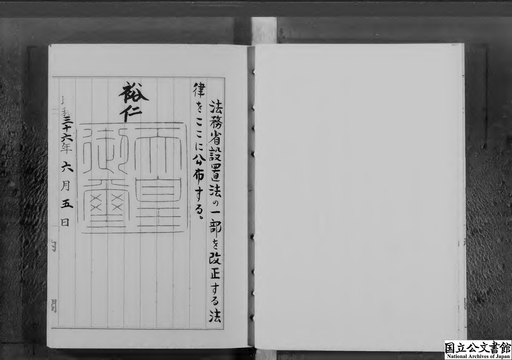 法務省設置法の一部を改正する法
律をここに公布する。
裕仁
天皇
御璽
三十六年六月五日
国立公文書館
National Archives of Japan